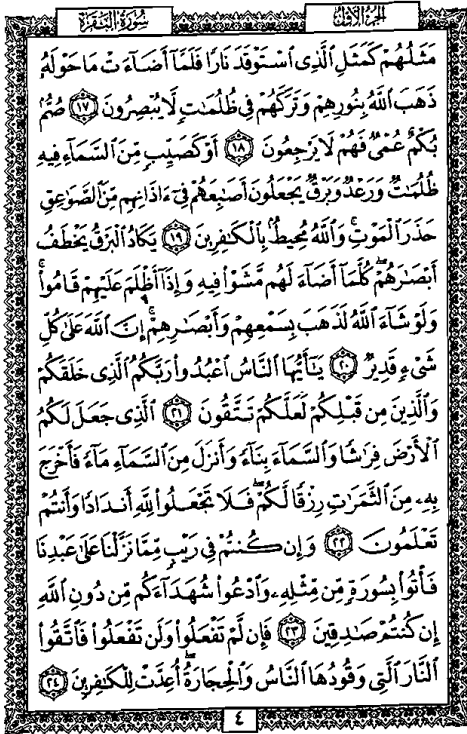 الجزء الأول
سورة البقرة
مَثَلُهُمْ كَمَثَلِ ٱلَّذِى ٱسْتَوْقَدَ نَارًا فَلَمَّآ أَضَآءَتْ مَا حَوْلَهُۥ
ذَهَبَ ٱللَّهُ بِنُورِهِمْ وَتَرَكَهُمْ فِى ظُلُمَـٰتٍ لَّا يُبْصِرُونَ ١٧ صُمٌّۢ
بُكْمٌ عُمْىٌ فَهُمْ لَا يَرْجِعُونَ ١٨ أَوْ كَصَيِّبٍ مِّنَ ٱلسَّمَآءِ فِيهِ
ظُلُمَـٰتٌ وَرَعْدٌ وَبَرْقٌ يَجْعَلُونَ أَصَـٰبِعَهُمْ فِىٓ ءَاذَانِهِم مِّنَ ٱلصَّوَٰعِقِ
حَذَرَ ٱلْمَوْتِ ۚ وَٱللَّهُ مُحِيطٌۢ بِٱلْكَـٰفِرِينَ ١٩ يَكَادُ ٱلْبَرْقُ يَخْطَفُ
أَبْصَـٰرَهُمْ ۖ كُلَّمَآ أَضَآءَ لَهُم مَّشَوْا۟ فِيهِ وَإِذَآ أَظْلَمَ عَلَيْهِمْ قَامُوا۟ ۚ
وَلَوْ شَآءَ ٱللَّهُ لَذَهَبَ بِسَمْعِهِمْ وَأَبْصَـٰرِهِمْ ۚ إِنَّ ٱللَّهَ عَلَىٰ كُلِّ
شَىْءٍ قَدِيرٌ ٢٠ يَـٰٓأَيُّهَا ٱلنَّاسُ ٱعْبُدُوا۟ رَبَّكُمُ ٱلَّذِى خَلَقَكُمْ
وَٱلَّذِينَ مِن قَبْلِكُمْ لَعَلَّكُمْ تَتَّقُونَ ٢١ ٱلَّذِى جَعَلَ لَكُمُ
ٱلْأَرْضَ فِرَٰشًا وَٱلسَّمَآءَ بِنَآءً وَأَنزَلَ مِنَ ٱلسَّمَآءِ مَآءً فَأَخْرَجَ
بِهِۦ مِنَ ٱلثَّمَرَٰتِ رِزْقًا لَّكُمْ ۖ فَلَا تَجْعَلُوا۟ لِلَّهِ أَندَادًا وَأَنتُمْ
تَعْلَمُونَ ٢٢ وَإِن كُنتُمْ فِى رَيْبٍ مِّمَّا نَزَّلْنَا عَلَىٰ عَبْدِنَا
فَأْتُوا۟ بِسُورَةٍ مِّن مِّثْلِهِۦ وَٱدْعُوا۟ شُهَدَآءَكُم مِّن دُونِ ٱللَّهِ
إِن كُنتُمْ صَـٰدِقِينَ ٢٣ فَإِن لَّمْ تَفْعَلُوا۟ وَلَن تَفْعَلُوا۟ فَٱتَّقُوا۟
ٱلنَّارَ ٱلَّتِى وَقُودُهَا ٱلنَّاسُ وَٱلْحِجَارَةُ ۖ أُعِدَّتْ لِلْكَـٰفِرِينَ ٢٤
٤